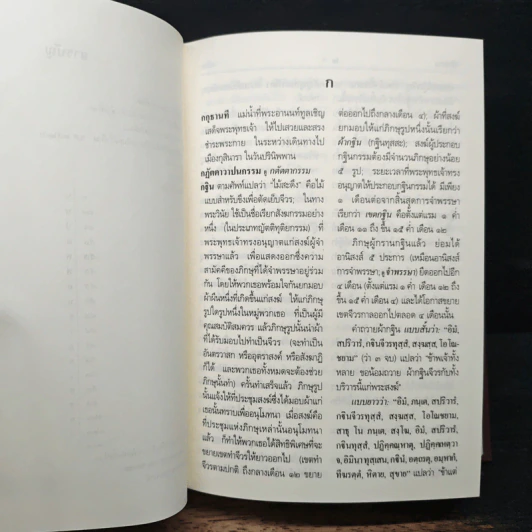 สารบัญ
ก
กกุธานที แม่น้ำที่พระอานนท์ทูลเชิญ
เสด็จพระพุทธเจ้า ให้ไปเสวยและสรง
ชำระพระกาย ในระหว่างเดินทางไป
เมืองกุสินารา ในวันปรินิพพาน
กฏัตตาวาปนกรรม ดู กตัตตากรรม
กฐิน ตามศัพท์แปลว่า “ไม้สะดึง” คือไม้
แบบสำหรับขึงเพื่อตัดเย็บจีวร; ในทาง
พระวินัย ใช้เป็นชื่อเรียกสังฆกรรมอย่าง
หนึ่ง (ในประเภทญัตติทุติยกรรม) ที่
พระพุทธเจ้าทรงอนุญาตแก่สงฆ์ผู้จำ
พรรษาแล้ว เพื่อแสดงออกซึ่งความ
สามัคคีของภิกษุที่ได้จำพรรษาอยู่ร่วม
กัน โดยให้พวกเธอพร้อมใจกันยกมอบ
ผ้าผืนหนึ่งที่เกิดขึ้นแก่สงฆ์ ให้แก่ภิกษุ
รูปใดรูปหนึ่งในหมู่พวกเธอ ที่เป็นผู้มี
คุณสมบัติสมควร แล้วภิกษุรูปนั้นนำผ้า
ที่ได้รับมอบไปทำเป็นจีวร (จะทำเป็น
อันตรวาสก หรืออุตราสงค์ หรือสังฆาฏิ
ก็ได้ และพวกเธอทั้งหมดจะต้องช่วย
ภิกษุนั้นทำ) ครั้นทำเสร็จแล้ว ภิกษุรูป
นั้นแจ้งให้ที่ประชุมสงฆ์ซึ่งได้มอบผ้าแก่
เธอนั้นทราบเพื่ออนุโมทนา เมื่อสงฆ์คือ
ที่ประชุมแห่งภิกษุเหล่านั้นอนุโมทนา
แล้ว ก็ทำให้พวกเธอได้สิทธิพิเศษที่จะ
ขยายเขตทำจีวรให้ยาวออกไป (เขตทำ
จีวรตามปกติ ถึงกลางเดือน ๑๒ ขยาย
ต่อออกไปถึงกลางเดือน ๔); ผ้าที่สงฆ์
ยกมอบให้แก่ภิกษุรูปหนึ่งนั้นเรียกว่า
ผ้ากฐิน (กฐินทุสสะ); สงฆ์ผู้ประกอบ
กฐินกรรมต้องมีจำนวนภิกษุอย่างน้อย
๕ รูป; ระยะเวลาที่พระพุทธเจ้าทรง
อนุญาตให้ประกอบกฐินกรรมได้ มีเพียง
๑ เดือนต่อจากสิ้นสุดการจำพรรษา
เรียกว่า เขตกฐิน คือตั้งแต่แรม ๑ ค่ำ
เดือน ๑๑ ถึง ขึ้น ๑๕ ค่ำ เดือน ๑๒
ภิกษุผู้กรานกฐินแล้ว ย่อมได้
อานิสงส์ ๕ ประการ (เหมือนอานิสงส์
การจำพรรษา; ดู จำพรรษา) ยืดออกไปอีก
๔ เดือน (ตั้งแต่แรม ๑ ค่ำ เดือน ๑๒ ถึง
ขึ้น ๑๕ ค่ำ เดือน ๔) และได้โอกาสขยาย
เขตจีวรกาลออกไปตลอด ๔ เดือนนั้น
คำถวายผ้ากฐิน แบบสั้นว่า: “อิมํ,
สปริวารํ, กฐินจีวรทุสฺสํ, สงฺฆสฺส, โอโณ-
ชยาม” (ว่า ๓ จบ) แปลว่า “ข้าพเจ้าทั้ง
หลาย ขอน้อมถวาย ผ้ากฐินจีวรกับทั้ง
บริวารนี้แก่พระสงฆ์”
แบบยาวว่า: “อิมํ, ภนฺเต, สปริวารํ,
กฐินจีวรทุสฺสํ, สงฺฆสฺส, โอโณชยาม,
สาธุ โน ภนฺเต, สงฺโฆ, อิมํ, สปริวารํ,
กฐินจีวรทุสฺสํ, ปฏิคฺคณฺหาตุ, ปฏิคฺคเหตฺวา
จ, อิมินา ทุสฺเสน, กฐินํ, อตฺถรตุ, อมฺหากํ,
ทีฆรตฺตํ, หิตาย, สุขาย” แปลว่า “ข้าแต่